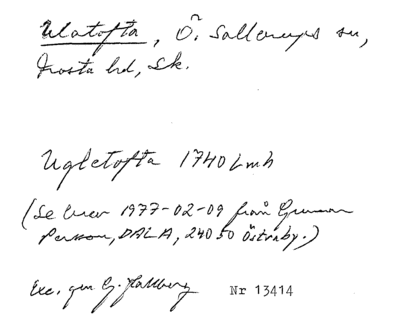 Ulatofta, Ö. Sallerups sn,
Frosta hd, Sk.
Ugletofta 1740 Lmh
(Se brev 1977-02-09 från Gunnar
Persson, DALA, 240 50 Östraby.)
Exc. gm G. Hallberg Nr 13414